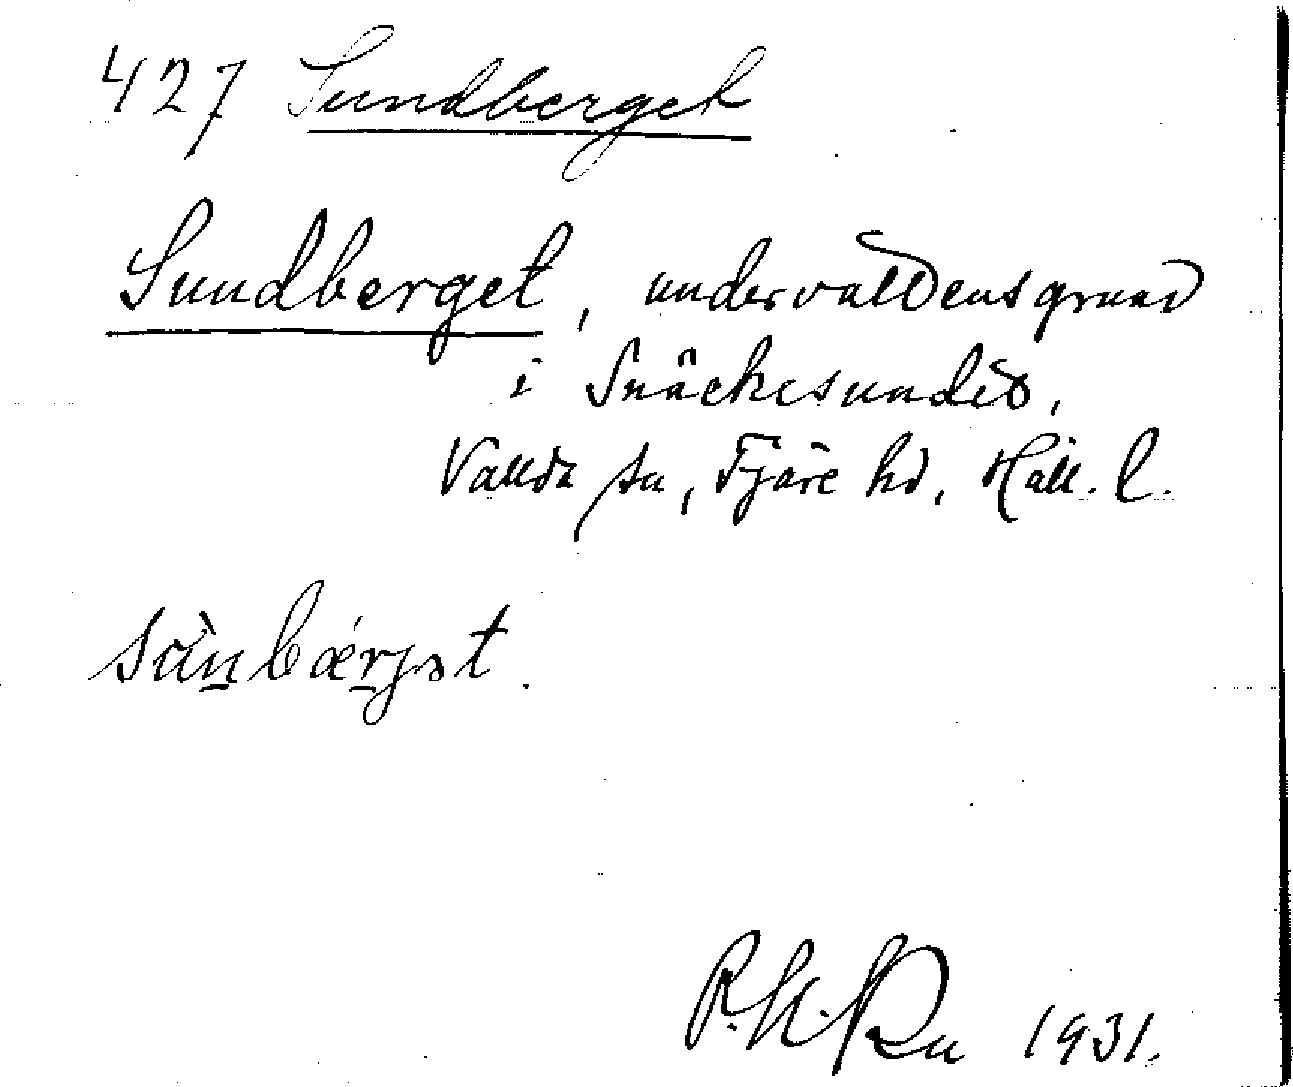 427 Sundberget
Sundberget, undervattensgrund
i Snäckesundet,
Vallda sn, Fjäre hd, Hall. l.
sàn̲bǽr̲jət.
1931.